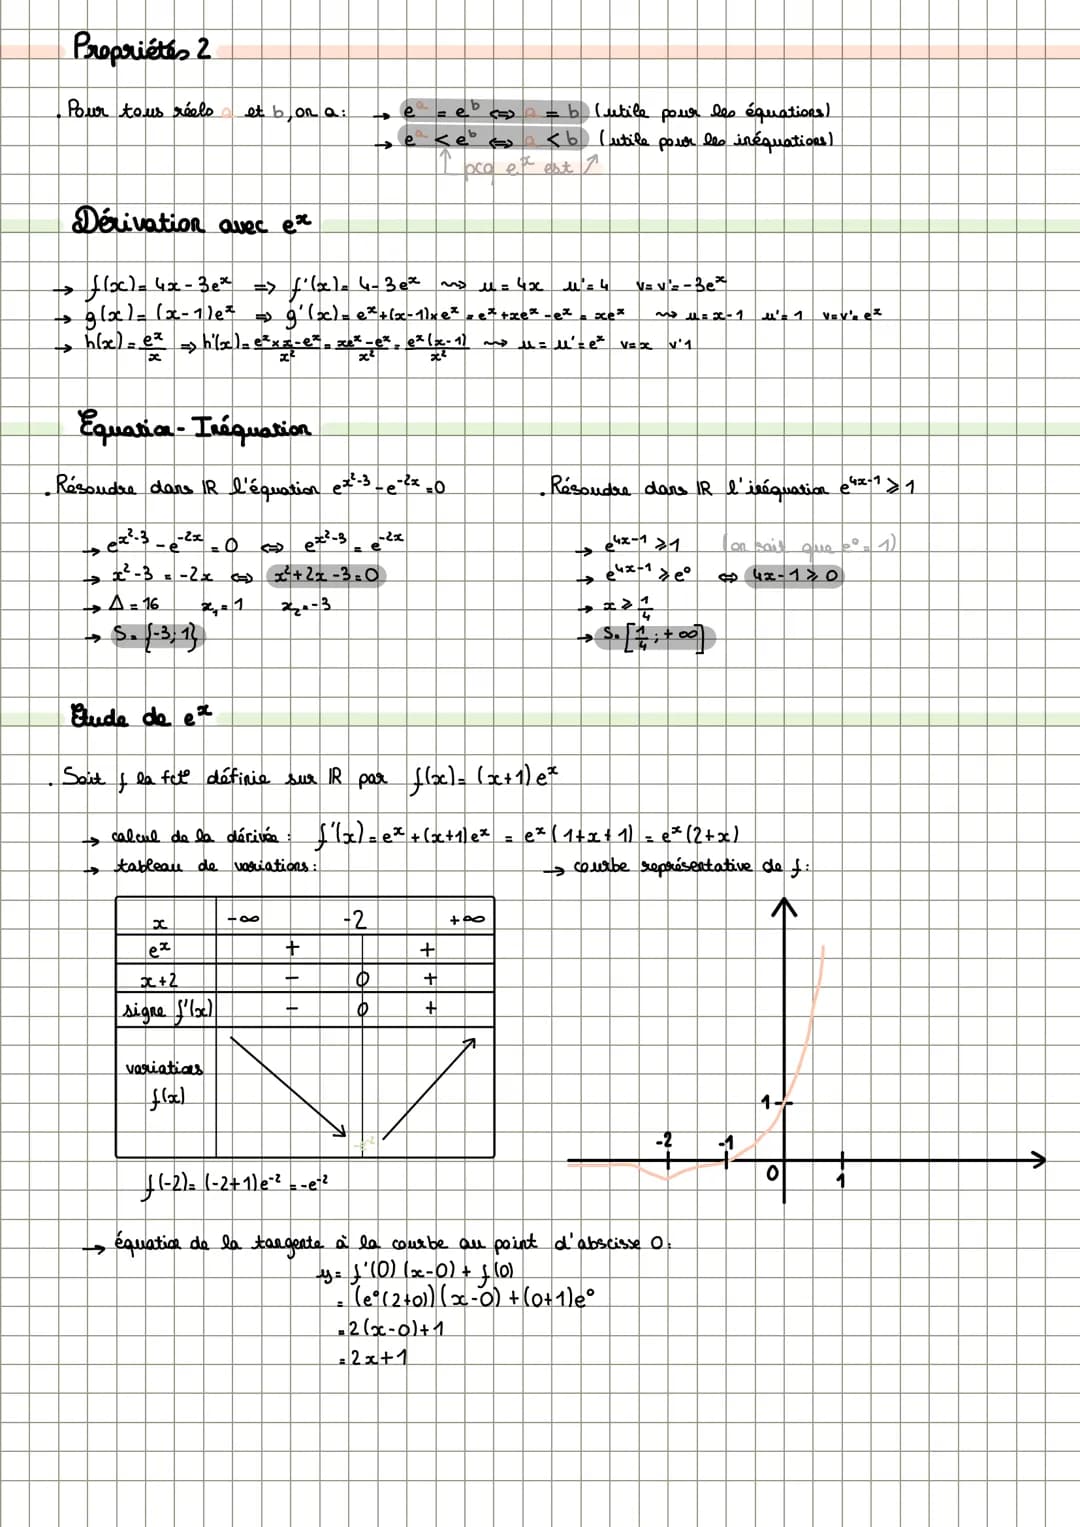 Propriétés 2
. Pour tous réels a et b, on a : → e^a = e^b ⇔ a = b (utile pour les équations)
→ e^a < e^b ⇔ a < b (utile pour les inéquations)
↑ pcq e^x est ↗
Dérivation avec e^x
→ f(x) = 4x - 3e^x ⇒ f'(x) = 4 - 3e^x ⇝ u = 4x u' = 4 v = v' = -3e^x
→ g(x) = (x-1)e^x ⇒ g'(x) = e^x + (x-1)×e^x = e^x + xe^x - e^x = xe^x ⇝ u = x-1 u' = 1 v = v' = e^x
→ h(x) = e^x/x ⇒ h'(x) = (e^x × x - e^x)/x² = (xe^x - e^x)/x² = e^x(x-1)/x² ⇝ u = u' = e^x v = x v' 1
Equation - Inéquation
. Résoudre dans IR l'équation e^(x²-3) - e^(-2x) = 0
→ e^(x²-3) - e^(-2x) = 0 ⇔ e^(x²-3) = e^(-2x)
→ x² - 3 = -2x ⇔ x² + 2x - 3 = 0
→ Δ = 16 x₁ = 1 x₂ = -3
→ S = {-3; 1}
. Résoudre dans IR l'inéquation e^(4x-1) ⩾ 1
→ e^(4x-1) ⩾ 1 (on sait que e⁰ = 1)
→ e^(4x-1) ⩾ e⁰ ⇔ 4x - 1 ⩾ 0
→ x ⩾ 1/4
→ S = [1/4 ; +∞]
Etude de e^x
. Soit f la fct° définie sur IR par f(x) = (x+1)e^x
→ calcul de la dérivée : f'(x) = e^x + (x+1)e^x = e^x(1+x+1) = e^x(2+x)
→ tableau de variations :
x -∞ -2 +∞
e^x + +
x+2 - 0 +
signe f'(x) - 0 +
variations
f(x) -e^-2
f(-2) = (-2+1)e^-2 = -e^-2
→ courbe représentative de f :
1
-2 -1
0 1
→ équation de la tangente à la courbe au point d'abscisse 0 :
y = f'(0)(x-0) + f(0)
= (e⁰(2+0))(x-0) + (0+1)e⁰
= 2(x-0)+1
= 2x+1